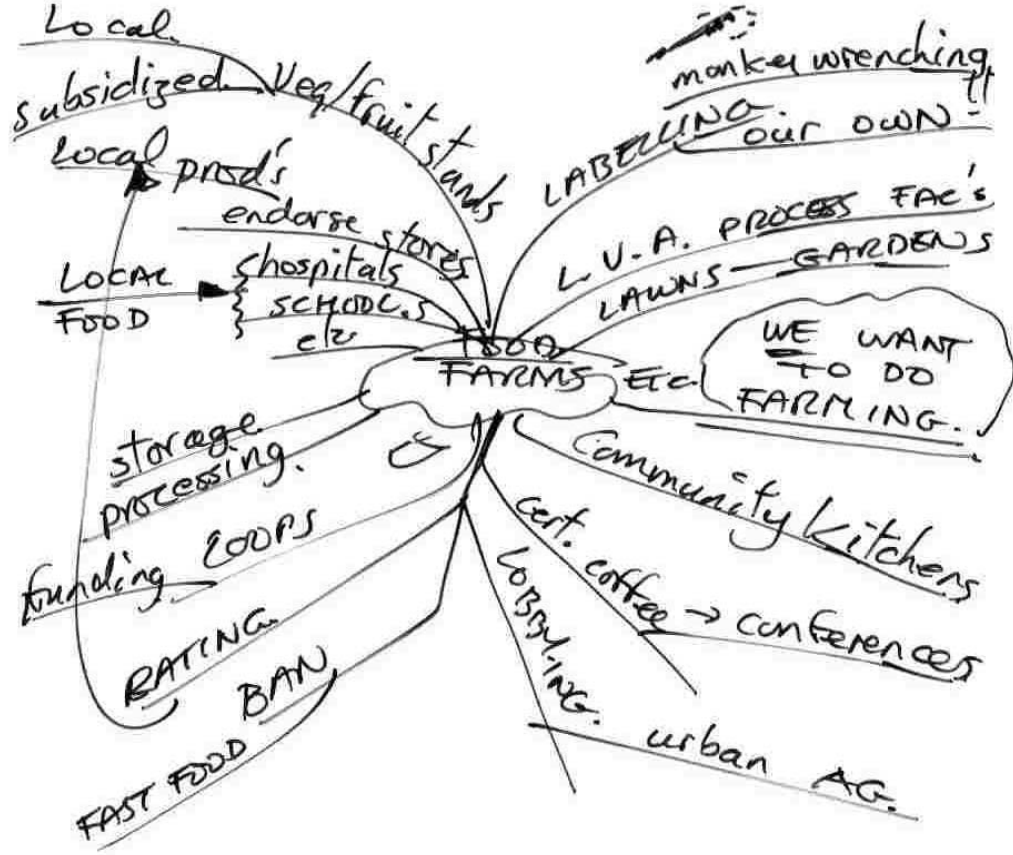 Local.
subsidized
Veg/fruit stands
Local prod's
endorse stores
LOCAL
FOOD
hospitals
SCHOOLS
etc
storage
processing.
funding LOOPS
RATING.
FAST FOOD BAN
monkey wrenching!!
LABELLING our OWN
L.V.A. PROCESS FAC's
LAWNS — GARDENS
FOOD
FARMS Etc.
WE WANT
TO DO
FARMING.
Community Kitchens
cert. coffee → conferences
LOBBYING.
urban AG.